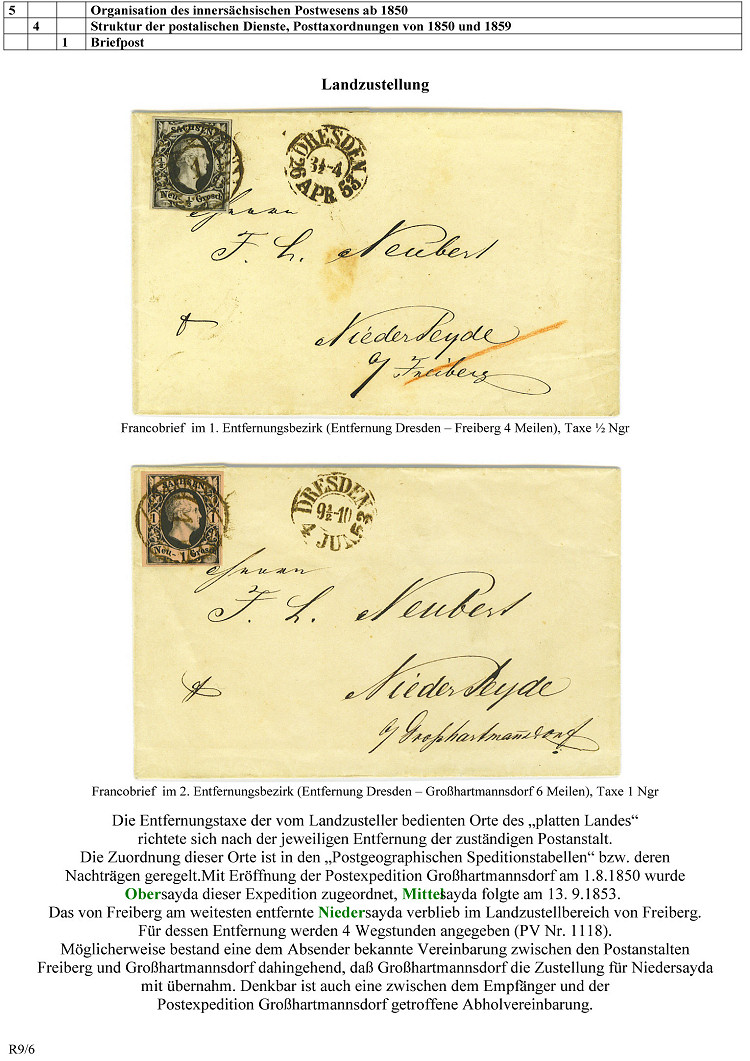 5 Organisation des innersächsischen Postwesens ab 1850
4 Struktur der postalischen Dienste, Posttaxordnungen von 1850 und 1859
1 Briefpost
Landzustellung
SACHSEN
Neu- ½ Grosch
DRESDEN
3½-4
26 APR 53
Herrn
F. L. Neubert
Niederseyde
a/ Freiberg
Francobrief im 1. Entfernungsbezirk (Entfernung Dresden – Freiberg 4 Meilen), Taxe ½ Ngr
SACHSEN
1 1
Neu- 1 Grosch
DRESDEN
9½-10
4 JUN 53
Herrn
F. L. Neubert
Niederseyde
a/ Großhartmannsdorf
Francobrief im 2. Entfernungsbezirk (Entfernung Dresden – Großhartmannsdorf 6 Meilen), Taxe 1 Ngr
Die Entfernungstaxe der vom Landzusteller bedienten Orte des „platten Landes“
richtete sich nach der jeweiligen Entfernung der zuständigen Postanstalt.
Die Zuordnung dieser Orte ist in den „Postgeographischen Speditionstabellen“ bzw. deren
Nachträgen geregelt.Mit Eröffnung der Postexpedition Großhartmannsdorf am 1.8.1850 wurde
Obersayda dieser Expedition zugeordnet, Mittelsayda folgte am 13. 9.1853.
Das von Freiberg am weitesten entfernte Niedersayda verblieb im Landzustellbereich von Freiberg.
Für dessen Entfernung werden 4 Wegstunden angegeben (PV Nr. 1118).
Möglicherweise bestand eine dem Absender bekannte Vereinbarung zwischen den Postanstalten
Freiberg und Großhartmannsdorf dahingehend, daß Großhartmannsdorf die Zustellung für Niedersayda
mit übernahm. Denkbar ist auch eine zwischen dem Empfänger und der
Postexpedition Großhartmannsdorf getroffene Abholvereinbarung.
R9/6